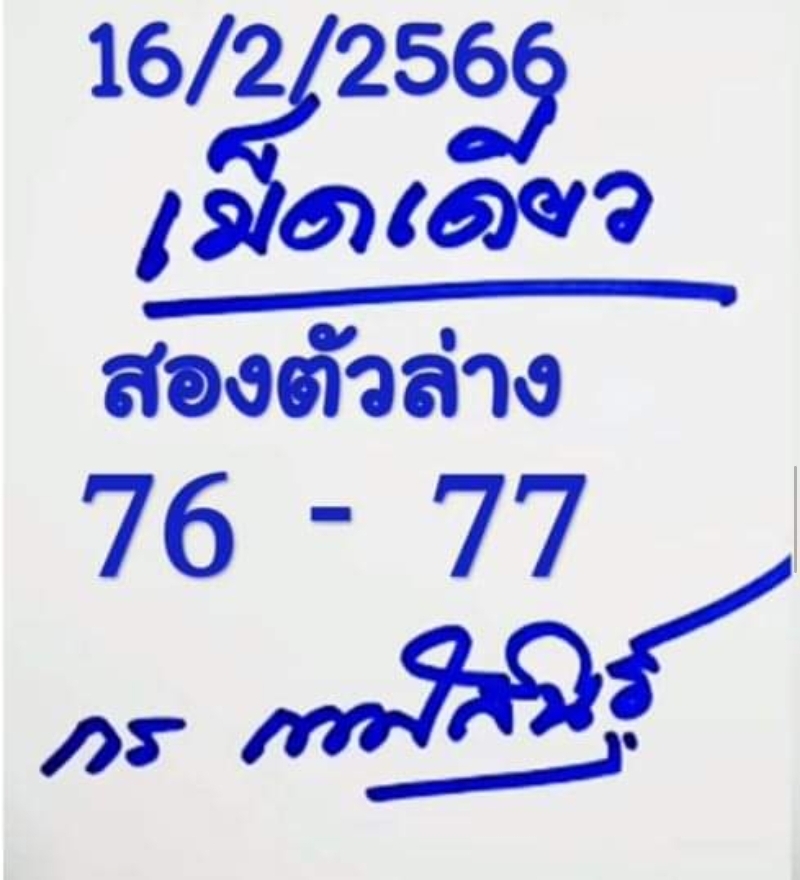 16/2/2566
เม็ดเดียว
สองตัวล่าง
76 - 77
กร กาฬสินธุ์